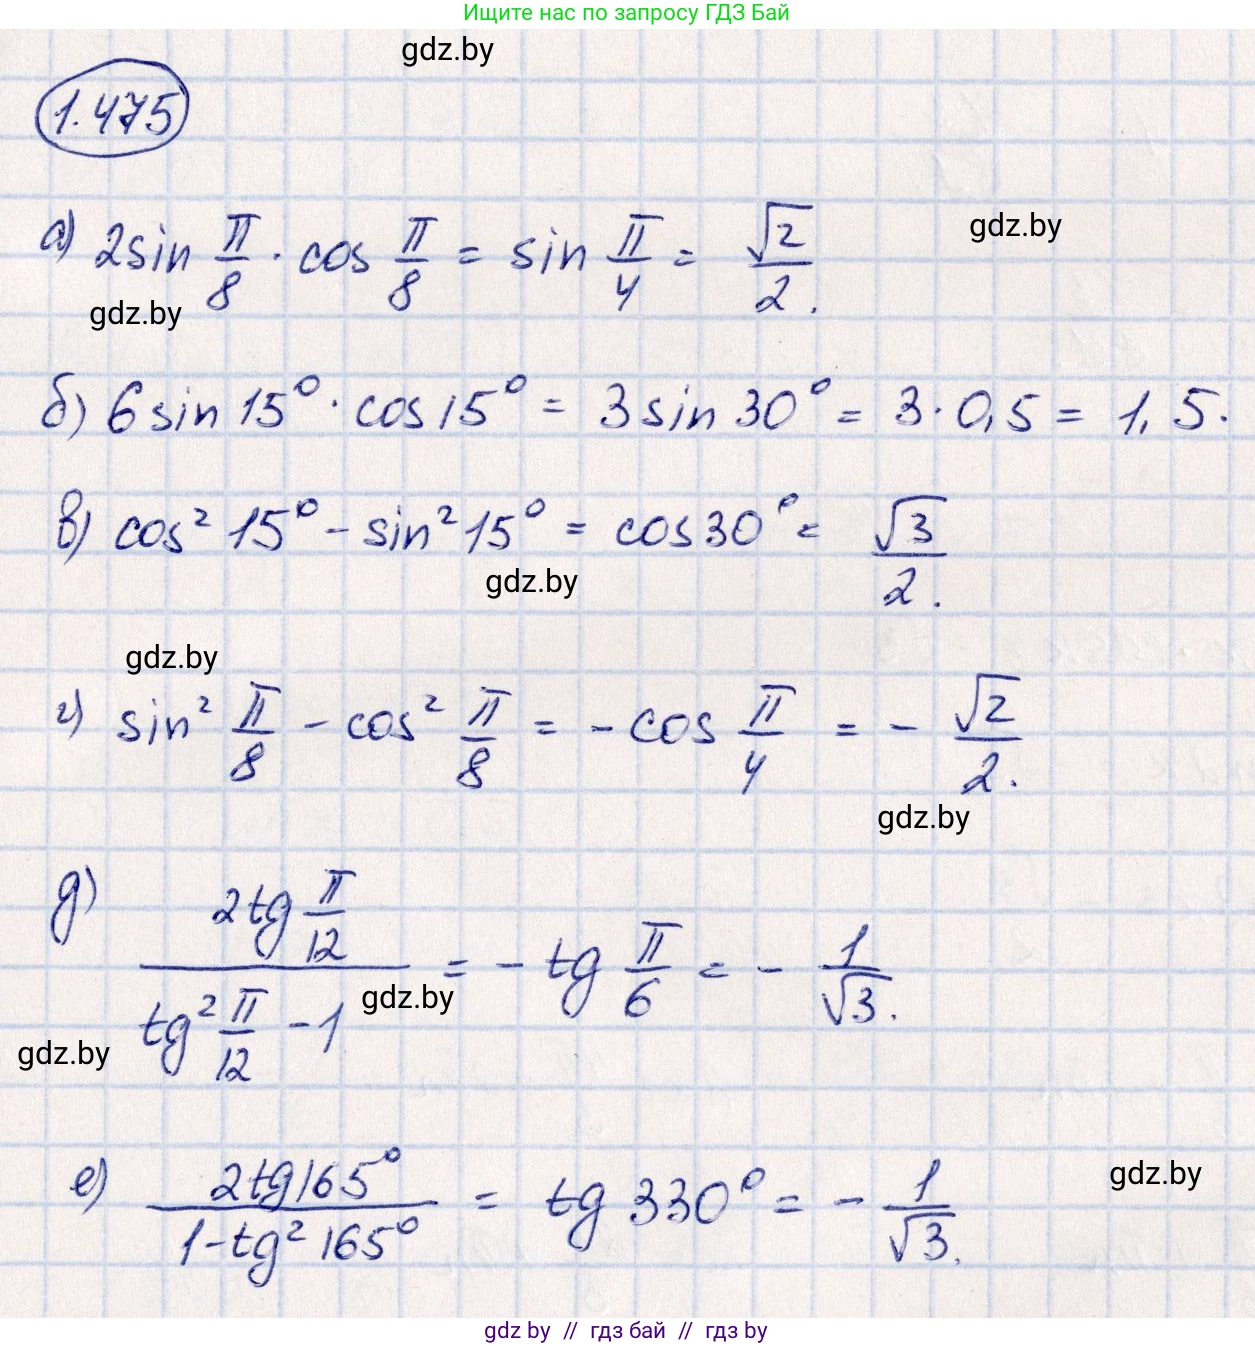 Ищите нас по запросу ГДЗ Бай
gdz.by
1.475
а) 2sin π/8 · cos π/8 = sin π/4 = √2/2.
gdz.by
gdz.by
б) 6 sin 15° · cos 15° = 3 sin 30° = 3 · 0,5 = 1,5.
в) cos² 15° - sin² 15° = cos 30° = √3/2.
gdz.by
gdz.by
г) sin² π/8 - cos² π/8 = - cos π/4 = - √2/2.
gdz.by
д) 2tg π/12 / tg² π/12 - 1 = - tg π/6 = - 1/√3.
gdz.by
gdz.by
е) 2tg 165° / 1 - tg² 165° = tg 330° = - 1/√3.
gdz.by
gdz by // гдз бай // гдз by